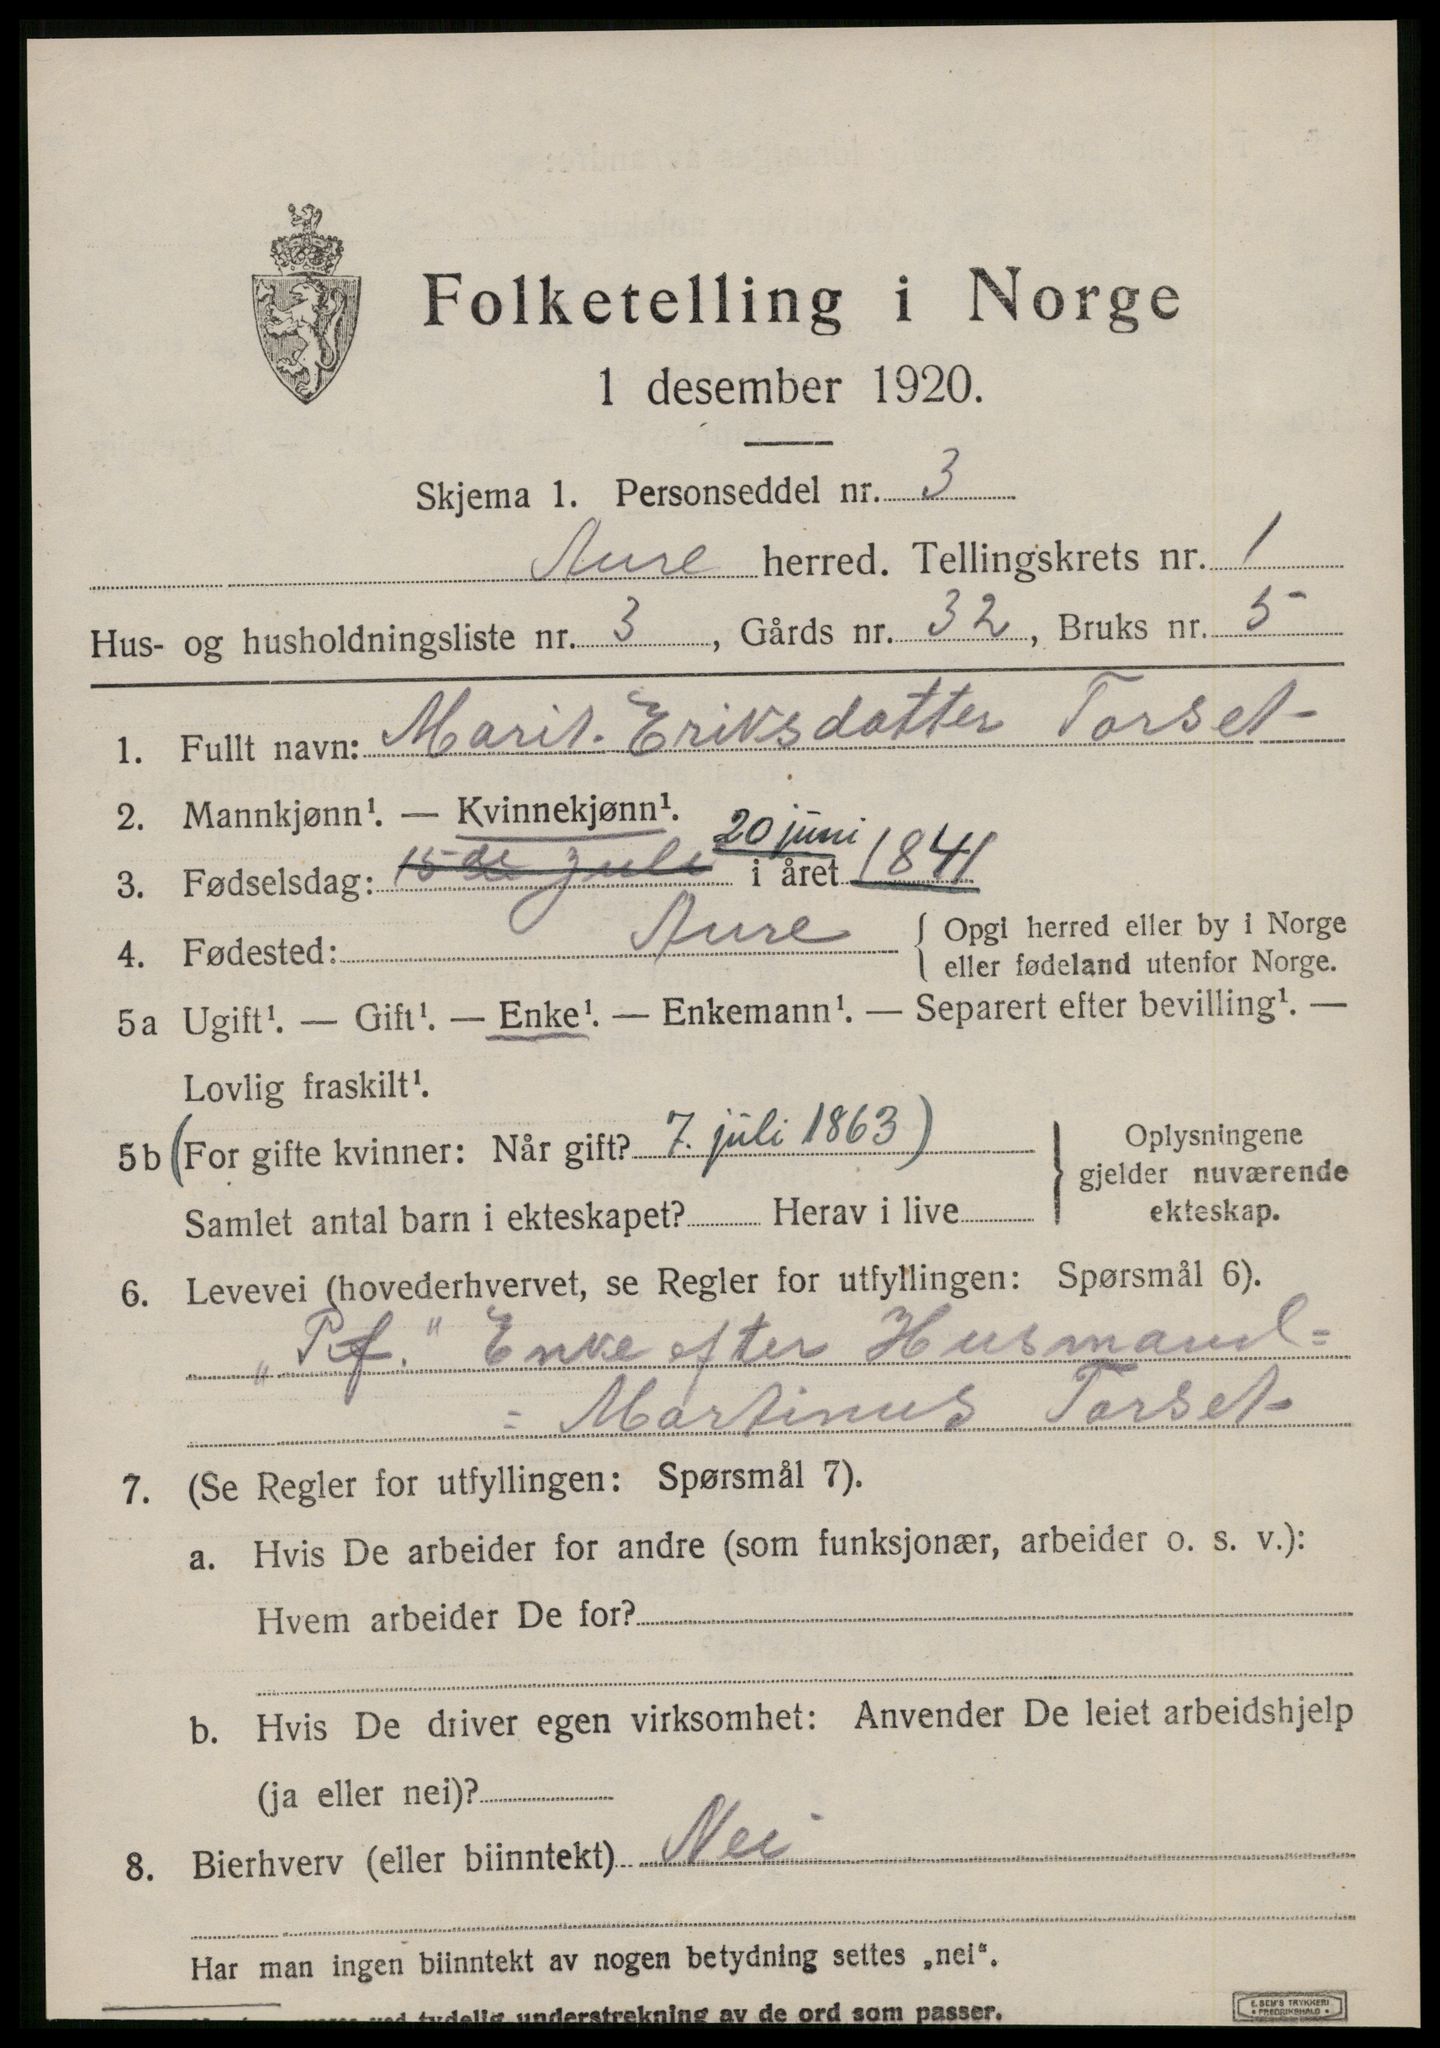 Folketelling i Norge
1 desember 1920.
Skjema 1. Personseddel nr. 3
Aure herred. Tellingskrets nr. 1
Hus- og husholdningsliste nr. 3, Gårds nr. 32, Bruks nr. 5
1. Fullt navn: Marit Eriksdatter Torset
2. Mannkjønn¹. — Kvinnekjønn¹.
20 juni
3. Fødselsdag: 15de Juli i året 1841
4. Fødested: Aure { Opgi herred eller by i Norge
eller fødeland utenfor Norge.
5a Ugift¹. — Gift¹. — Enke¹. — Enkemann¹. — Separert efter bevilling¹. —
Lovlig fraskilt¹.
5b (For gifte kvinner: Når gift? 7. juli 1863)
Samlet antal barn i ekteskapet? Herav i live
} Oplysningene
gjelder nuværende
ekteskap.
6. Levevei (hovederhvervet, se Regler for utfyllingen: Spørsmål 6).
Enke efter Husmand=
= Martinus Torset
7. (Se Regler for utfyllingen: Spørsmål 7).
a. Hvis De arbeider for andre (som funksjonær, arbeider o. s. v.):
Hvem arbeider De for?
b. Hvis De driver egen virksomhet: Anvender De leiet arbeidshjelp
(ja eller nei)?
8. Bierhverv (eller biinntekt) Nei
Har man ingen biinntekt av nogen betydning settes „nei“.
ved tydelig understrekning av de ord som passer.
E. SEM'S TRYKKERI
FREDRIKSHALD